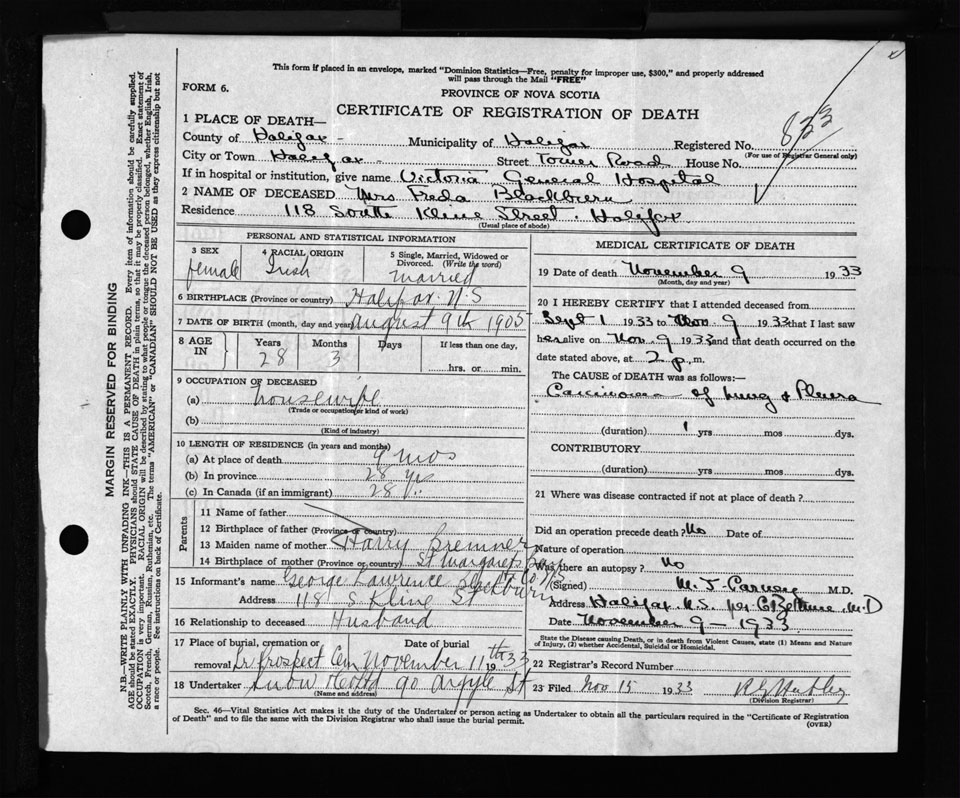 This form if placed in an envelope, marked "Dominion Statistics—Free, penalty for improper use, $300," and properly addressed
will pass through the Mail "FREE"
FORM 6.
PROVINCE OF NOVA SCOTIA
CERTIFICATE OF REGISTRATION OF DEATH
833
1 PLACE OF DEATH—
County of Halifax Municipality of Halifax Registered No.
(For use of Registrar General only)
City or Town Halifax Street Tower Road House No.
If in hospital or institution, give name Victoria General Hospital
2 NAME OF DECEASED Mrs Freda Blackburn
Residence 118 South Kline Street. Halifax
(Usual place of abode)
PERSONAL AND STATISTICAL INFORMATION
3 SEX female
4 RACIAL ORIGIN Irish
5 Single, Married, Widowed or Divorced. (Write the word) married
6 BIRTHPLACE (Province or country) Halifax. N.S
7 DATE OF BIRTH (month, day and year) August 9th 1905
8 AGE IN Years Months Days If less than one day,
28 3 hrs. or min.
9 OCCUPATION OF DECEASED
(a) housewife
(Trade or occupation or kind of work)
(b)
(Kind of industry)
10 LENGTH OF RESIDENCE (in years and months)
(a) At place of death 9 mos
(b) In province 28 yrs
(c) In Canada (if an immigrant) 28 "
Parents
11 Name of father
12 Birthplace of father (Province or country)
13 Maiden name of mother Harry Bremner
14 Birthplace of mother (Province or country) St Margarets
15 Informant's name George Lawrence Blackburn
Address 118 S. Kline St
16 Relationship to deceased Husband
17 Place of burial, cremation or Date of burial
removal Dr. Prospect Cem November 11th 1933
18 Undertaker Snow Co Ltd 90 Argyle St
(Name and address)
MEDICAL CERTIFICATE OF DEATH
19 Date of death November 9 1933
(Month, day and year)
20 I HEREBY CERTIFY that I attended deceased from
Sept 1 1933 to Nov. 9 1933 that I last saw
her alive on Nov. 9 1933 and that death occurred on the
date stated above, at 2 p. m.
The CAUSE OF DEATH was as follows:—
Carcinoma of lung & Pleura
(duration) 1 yrs mos dys.
CONTRIBUTORY
(duration) yrs mos dys.
21 Where was disease contracted if not at place of death?
Did an operation precede death? No Date of
Nature of operation
Was there an autopsy? No
(Signed) M. J. Carney M.D.
Address Halifax N.S. per C Bethune M.D
Date November 9 - 1933
State the Disease causing Death, or in death from Violent Causes, state (1) Means and Nature of Injury, (2) whether Accidental, Suicidal or Homicidal.
22 Registrar's Record Number
23 Filed Nov 15 1933
(Division Registrar)
Sec. 46—Vital Statistics Act makes it the duty of the Undertaker or person acting as Undertaker to obtain all the particulars required in the "Certificate of Registration
of Death" and to file the same with the Division Registrar who shall issue the burial permit.
(OVER)
MARGIN RESERVED FOR BINDING
N.B.—WRITE PLAINLY WITH UNFADING INK—THIS IS A PERMANENT RECORD. Every item of information should be carefully supplied.
AGE should be stated EXACTLY. PHYSICIANS should STATE CAUSE OF DEATH in plain terms, so that it may be properly classified. Exact statement of
OCCUPATION is very important. RACIAL ORIGIN will be described by stating to what people or tongue the deceased person belonged, whether English, Irish,
Scotch, French, German, Russian, Ruthenian, etc. The terms "AMERICAN" or "CANADIAN" SHOULD NOT BE USED as they express citizenship but not
a race or people. See instructions on back of Certificate.